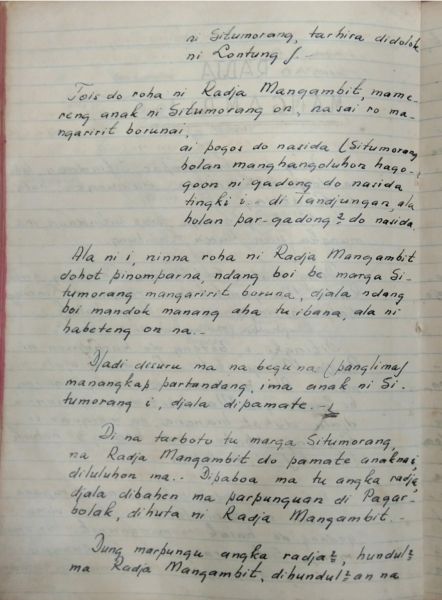 ni Situmorang, tarhira didolok
ni Lontung /.-
Tois do roha ni Radja Mangambit, mame-
reng anak ni Situmorang on, na sai ro ma-
ngaririt borunai,
ai pogos do nasida (Situmorang
holan manghangoluhon hago-
goon ni gadong do nasida
tingki i - di Tandjungan ala
holan par-gadong 2 do nasida
Ala ni i, ninna roha ni Radja Mangambit
dohot pinomparna, ndang boi be marga Si-
tumorang mangaririt boruna, djala ndang
boi mandok manang aha tu ibana, ala ni
habeteng on na.-
Djadi disuru ma na beguna (panglima)
manangkap partandang, ima anak ni Si-
tumorang i, djala dipamate.-
Di na tarboto tu marga Situmorang,
na Radja Mangambit do pamate anaknai,
diluluhon ma.. Dipaboa ma tu angka radja,
djala dibahen ma parpunguan di Pagar-
bolak, dihuta ni Radja Mangambit.-
Dung marpungu angka radja2, hundul2
ma Radja Mangambit, dihundul2an na